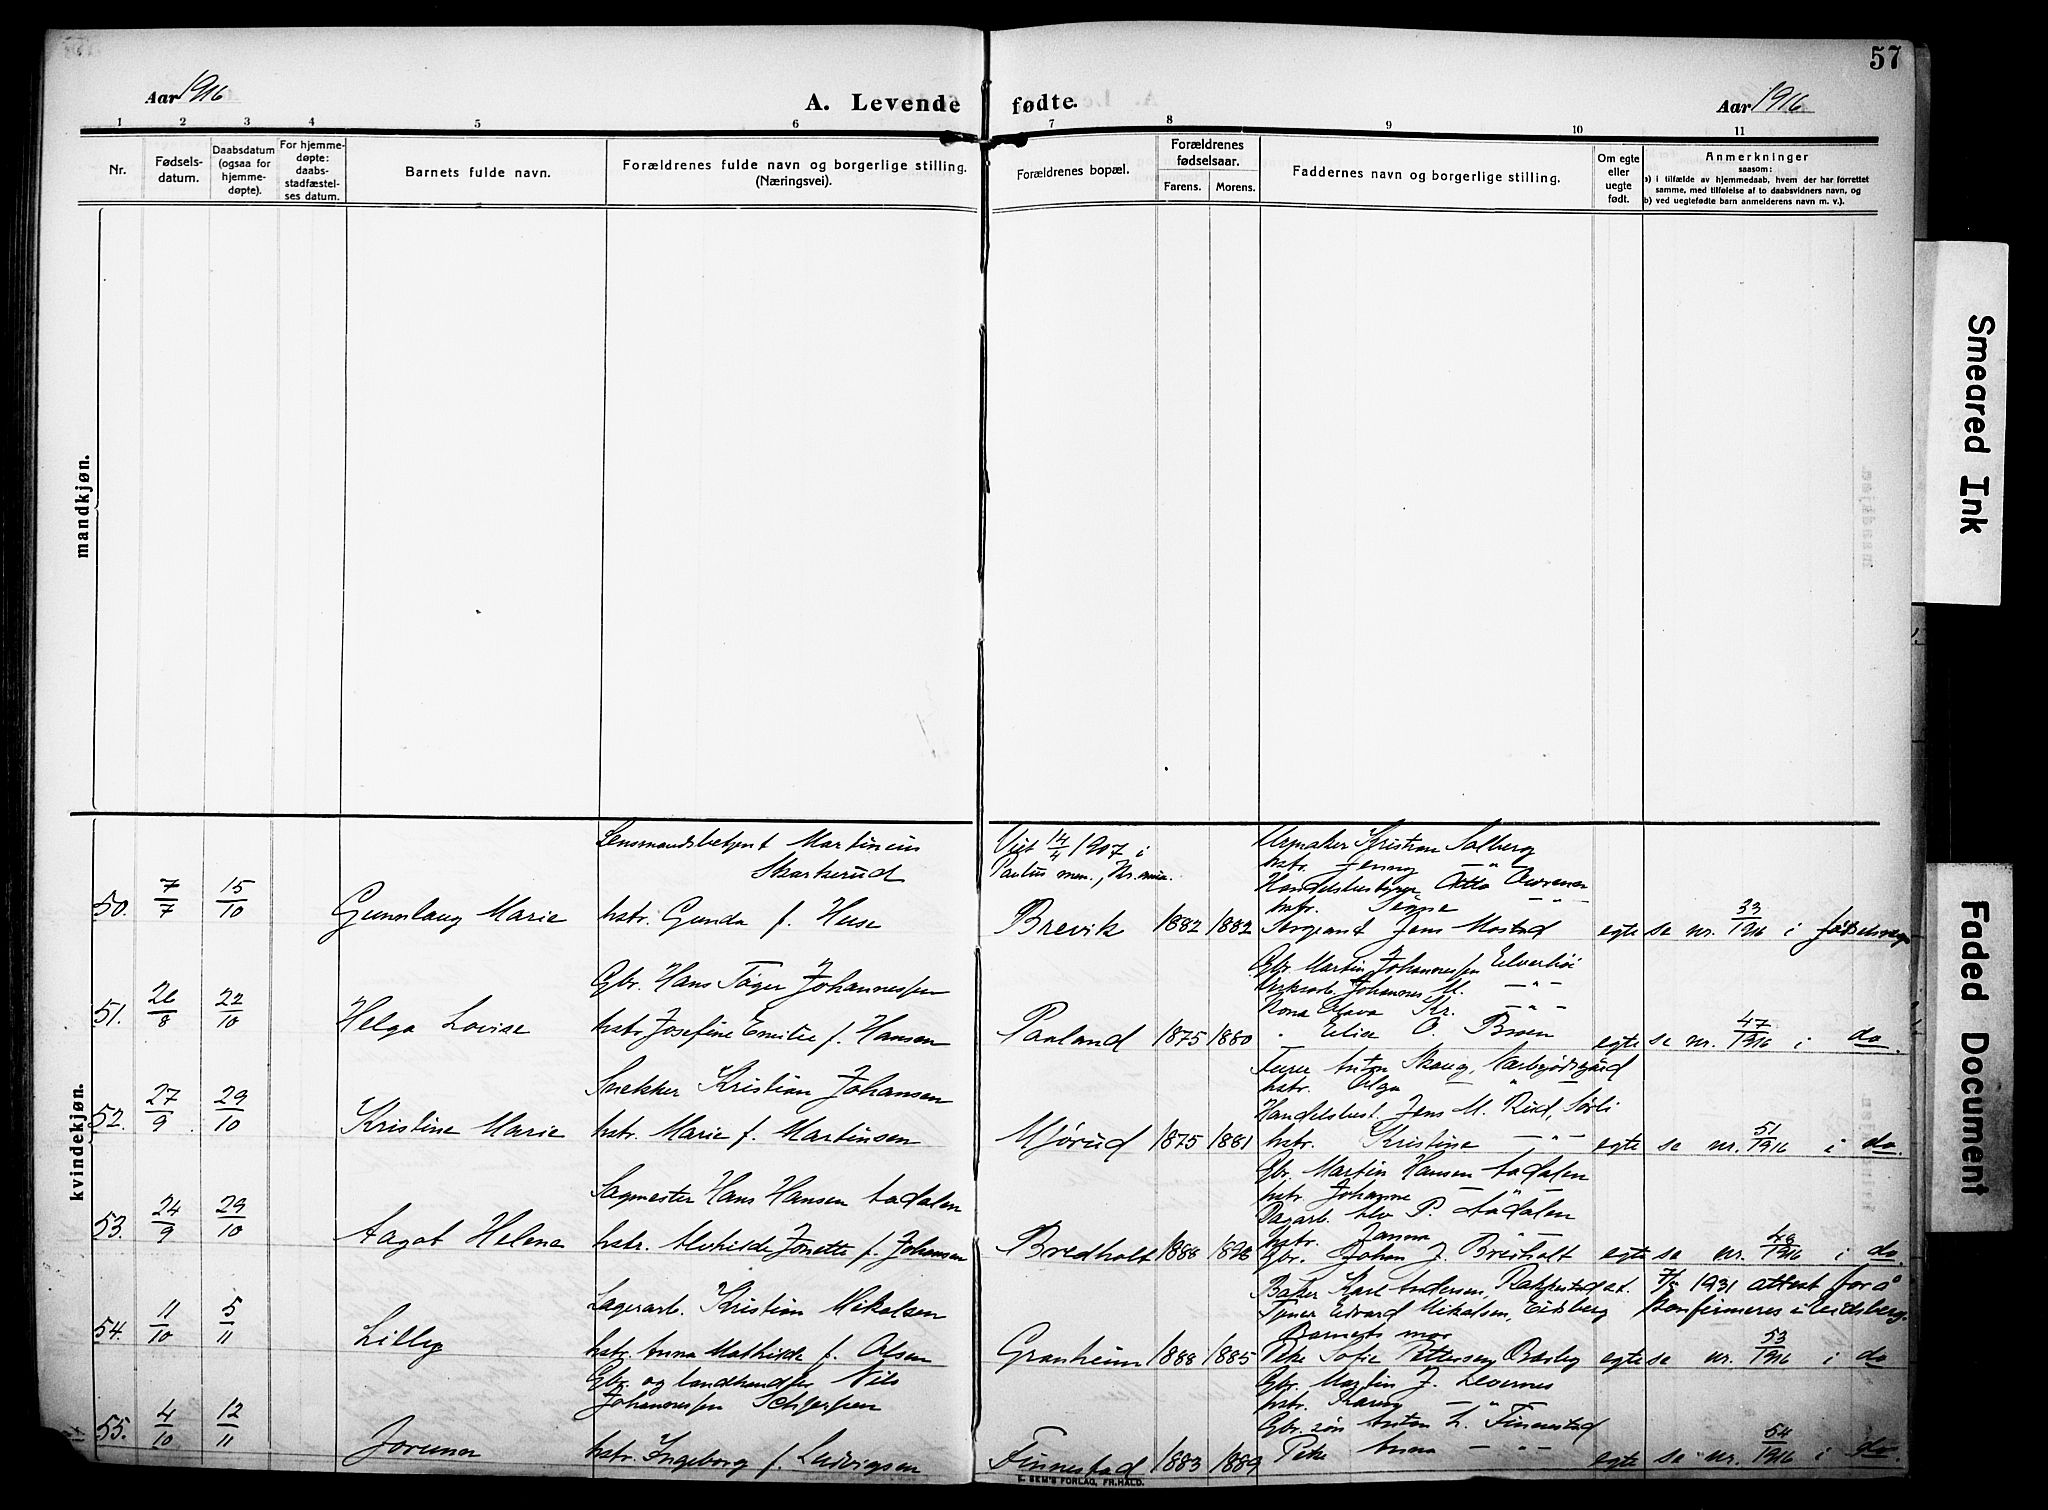 57
Aar 1916
A. Levende fødte.
Aar 1916
1 2 3 4 5 6 7 8 9 10 11
Nr.
Fødsels-
datum.
Daabsdatum
(ogsaa for
hjemme-
døpte).
For hjemme-
døpte:
daabs-
stadfæstel-
ses datum.
Barnets fulde navn.
Forældrenes fulde navn og borgerlige stilling.
(Næringsvei).
Forældrenes bopæl.
Forældrenes
fødselsaar.
Farens. Morens.
Faddernes navn og borgerlige stilling.
Om egte
eller
uegte
født.
Anmerkninger
saasom:
a) i tilfælde av hjemmedaab, hvem der har forrettet
samme, med tilføielse af to daabsvidners navn, og
b) ved uegtefødte barn anmelderens navn m. v.).
mandkjøn.
kvindekjøn.
50. 7/7 15/10 Gunnlaug Marie
Lensmandsbetjent Martinius
Skarkerud
hstr. Gunda f. Huse
Viet 14/4 1907 i
Paulus men., Kr.ania.
Brevik 1882 1882
Urmaker Kristian Solberg
hstr. Jenny — " —
Handelsbestyrer Otto
hstr. — " —
Sergeant Jens Mostad
egte se nr. 33/1916 i fødselsreg.
51. 26/8 22/10 Helga Lovise
Gbr. Hans Tøger Johannessen
hstr. Josefine Emilie f. Hansen
Paaland 1875 1880
Gbr. Martin Johannessen
Johannes M. — " —
Kona Olava Kr. — " —
" Elise O. Broen
egte se nr. 47/1916 i do.
52. 27/9 29/10 Kristine Marie
Snekker Kristian Johansen
hstr. Marie f. Martinsen
Mjørud 1875 1881
Anton Skaug,
hstr. Olga — " —
Handelsbest. Jens M. Rud, Sørli
hstr. Kristine — " —
egte se nr. 51/1916 i do.
53. 24/9 29/10 Aagot Helene
Sagmester Hans Hansen Aadalen
hstr. Alvhilde Jonette f. Johansen
Bredholt 1888
Gbr. Martin Hansen Aadalen
hstr. Johanne — " —
Dagarb. Alv P. Aadalen
hstr. Janna — " —
Gbr. Johan J. Breiholt
egte se nr. 48/1916 i do.
54. 11/10 5/11 Lilly
Lagerarb. Kristian Mikalsen
hstr. Anna Mathilde f. Olsen
Granheim 1888 1885
Baker Karl Andersen, Rakkestad st.
Edvard Mikalsen, Eidsberg
Barnets mor
Pike Sofie Pettersen,
1931 attest for å
konfirmeres i Eidsberg.
egte se nr. 53/1916 i do
55. 4/10 12/11 Jorunn
Gbr. og landhandler Nils
Johannessen
hstr. Ingeborg f. Ludvigsen
Finnestad 1883 1889
Gbr. Martin J. Levernes
hstr. Karen — " —
Gbr. søn Anton L. Finnestad
Pike Anna — " —
egte se nr. 54/1916 i do.
E. SEM'S FORLAG, FR.HALD.
Smeared Ink
Faded Document